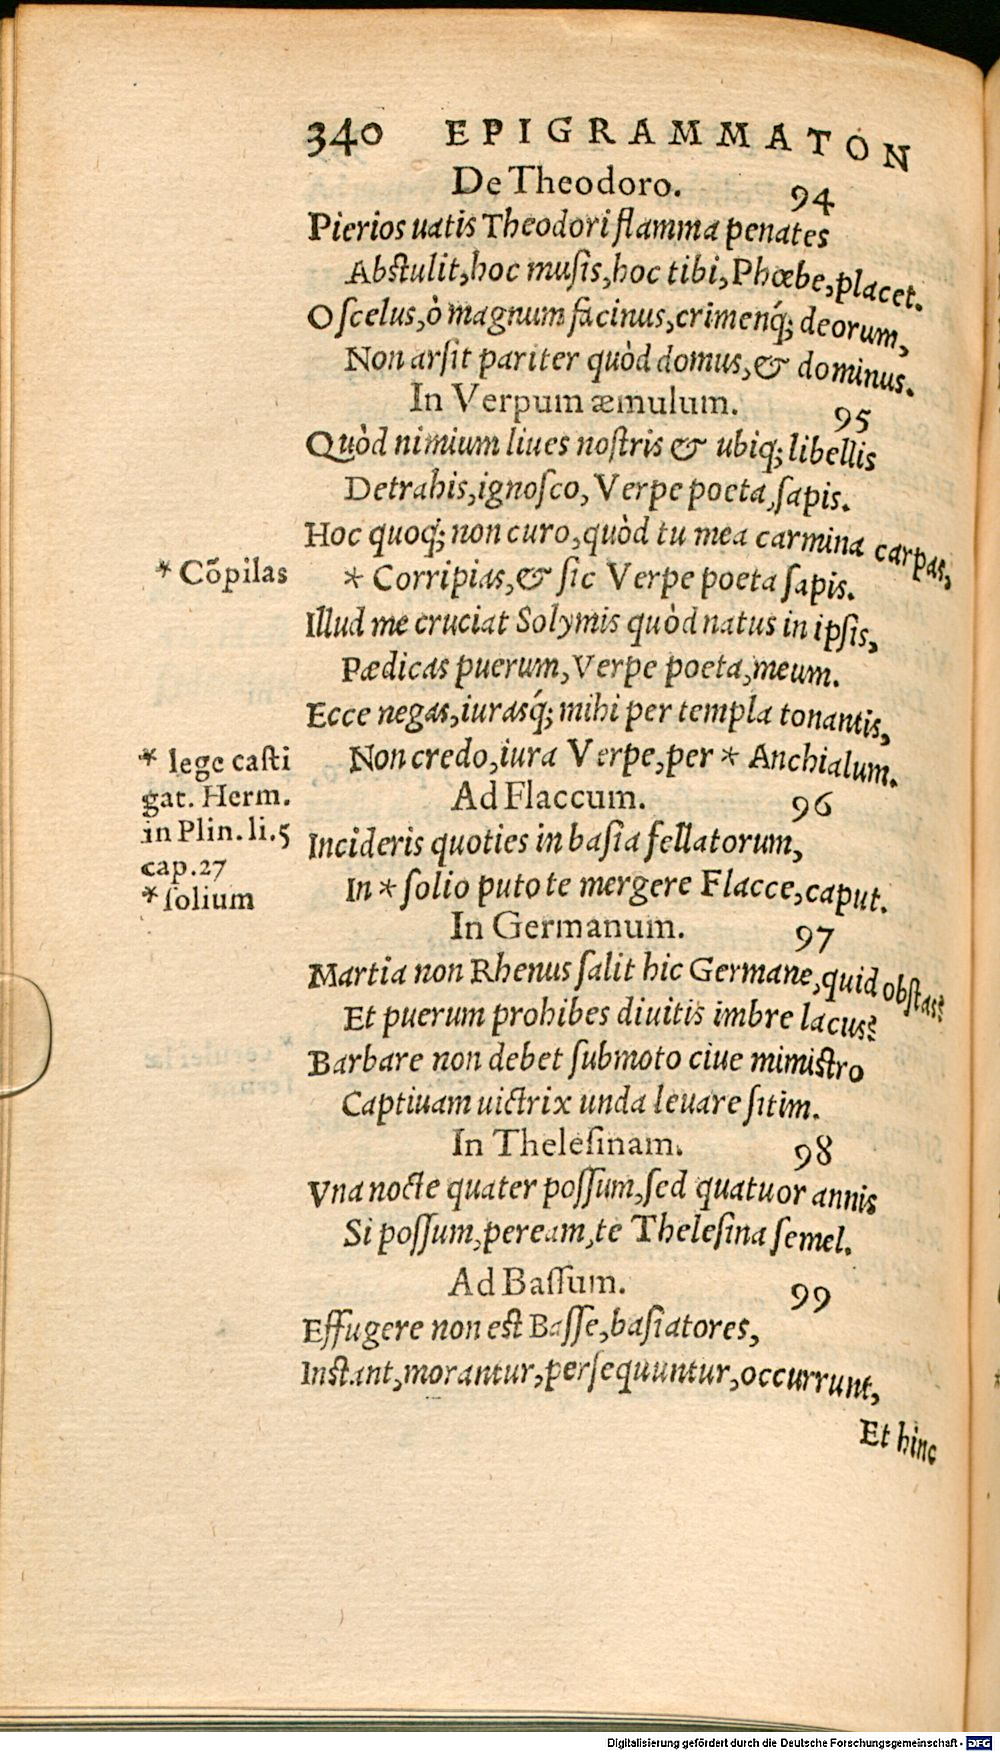 340 EPIGRAMMATON
De Theodoro. 94
Pierios uatis Theodori flamma penates
Abstulit, hoc musis, hoc tibi, Phœbe, placet.
O scelus, ò magnum facinus, crimenq́; deorum,
Non arsit pariter quòd domus, & dominus.
In Verpum æmulum. 95
Quòd nimium liues nostris & ubiq; libellis
Detrahis, ignosco, Verpe poeta, sapis.
Hoc quoq́; non curo, quòd tu mea carmina carpas,
* Cõpilas
* Corripias, & sic Verpe poeta sapis.
Illud me cruciat Solymis quòd natus in ipsis,
Pædicas puerum, Verpe poeta, meum.
Ecce negas, iurasq́; mihi per templa tonantis,
Non credo, iura Verpe, per * Anchialum.
* lege casti
gat. Herm.
in Plin. li. 5
cap. 27
Ad Flaccum. 96
Incideris quoties in basia fellatorum,
In * solio puto te mergere Flacce, caput.
* solium
In Germanum. 97
Martia non Rhenus salit hic Germane, quid obstas?
Et puerum prohibes diuitis imbre lacus?
Barbare non debet submoto ciue mimistro
Captiuam uictrix unda leuare sitim.
In Thelesinam. 98
Vna nocte quater possum, sed quatuor annis
Si possum, peream, te Thelesina semel.
Ad Bassum. 99
Effugere non est Basse, basiatores,
Instant, morantur, persequuntur, occurrunt,
Et hinc
Digitalisierung gefördert durch die Deutsche Forschungsgemeinschaft - DFG